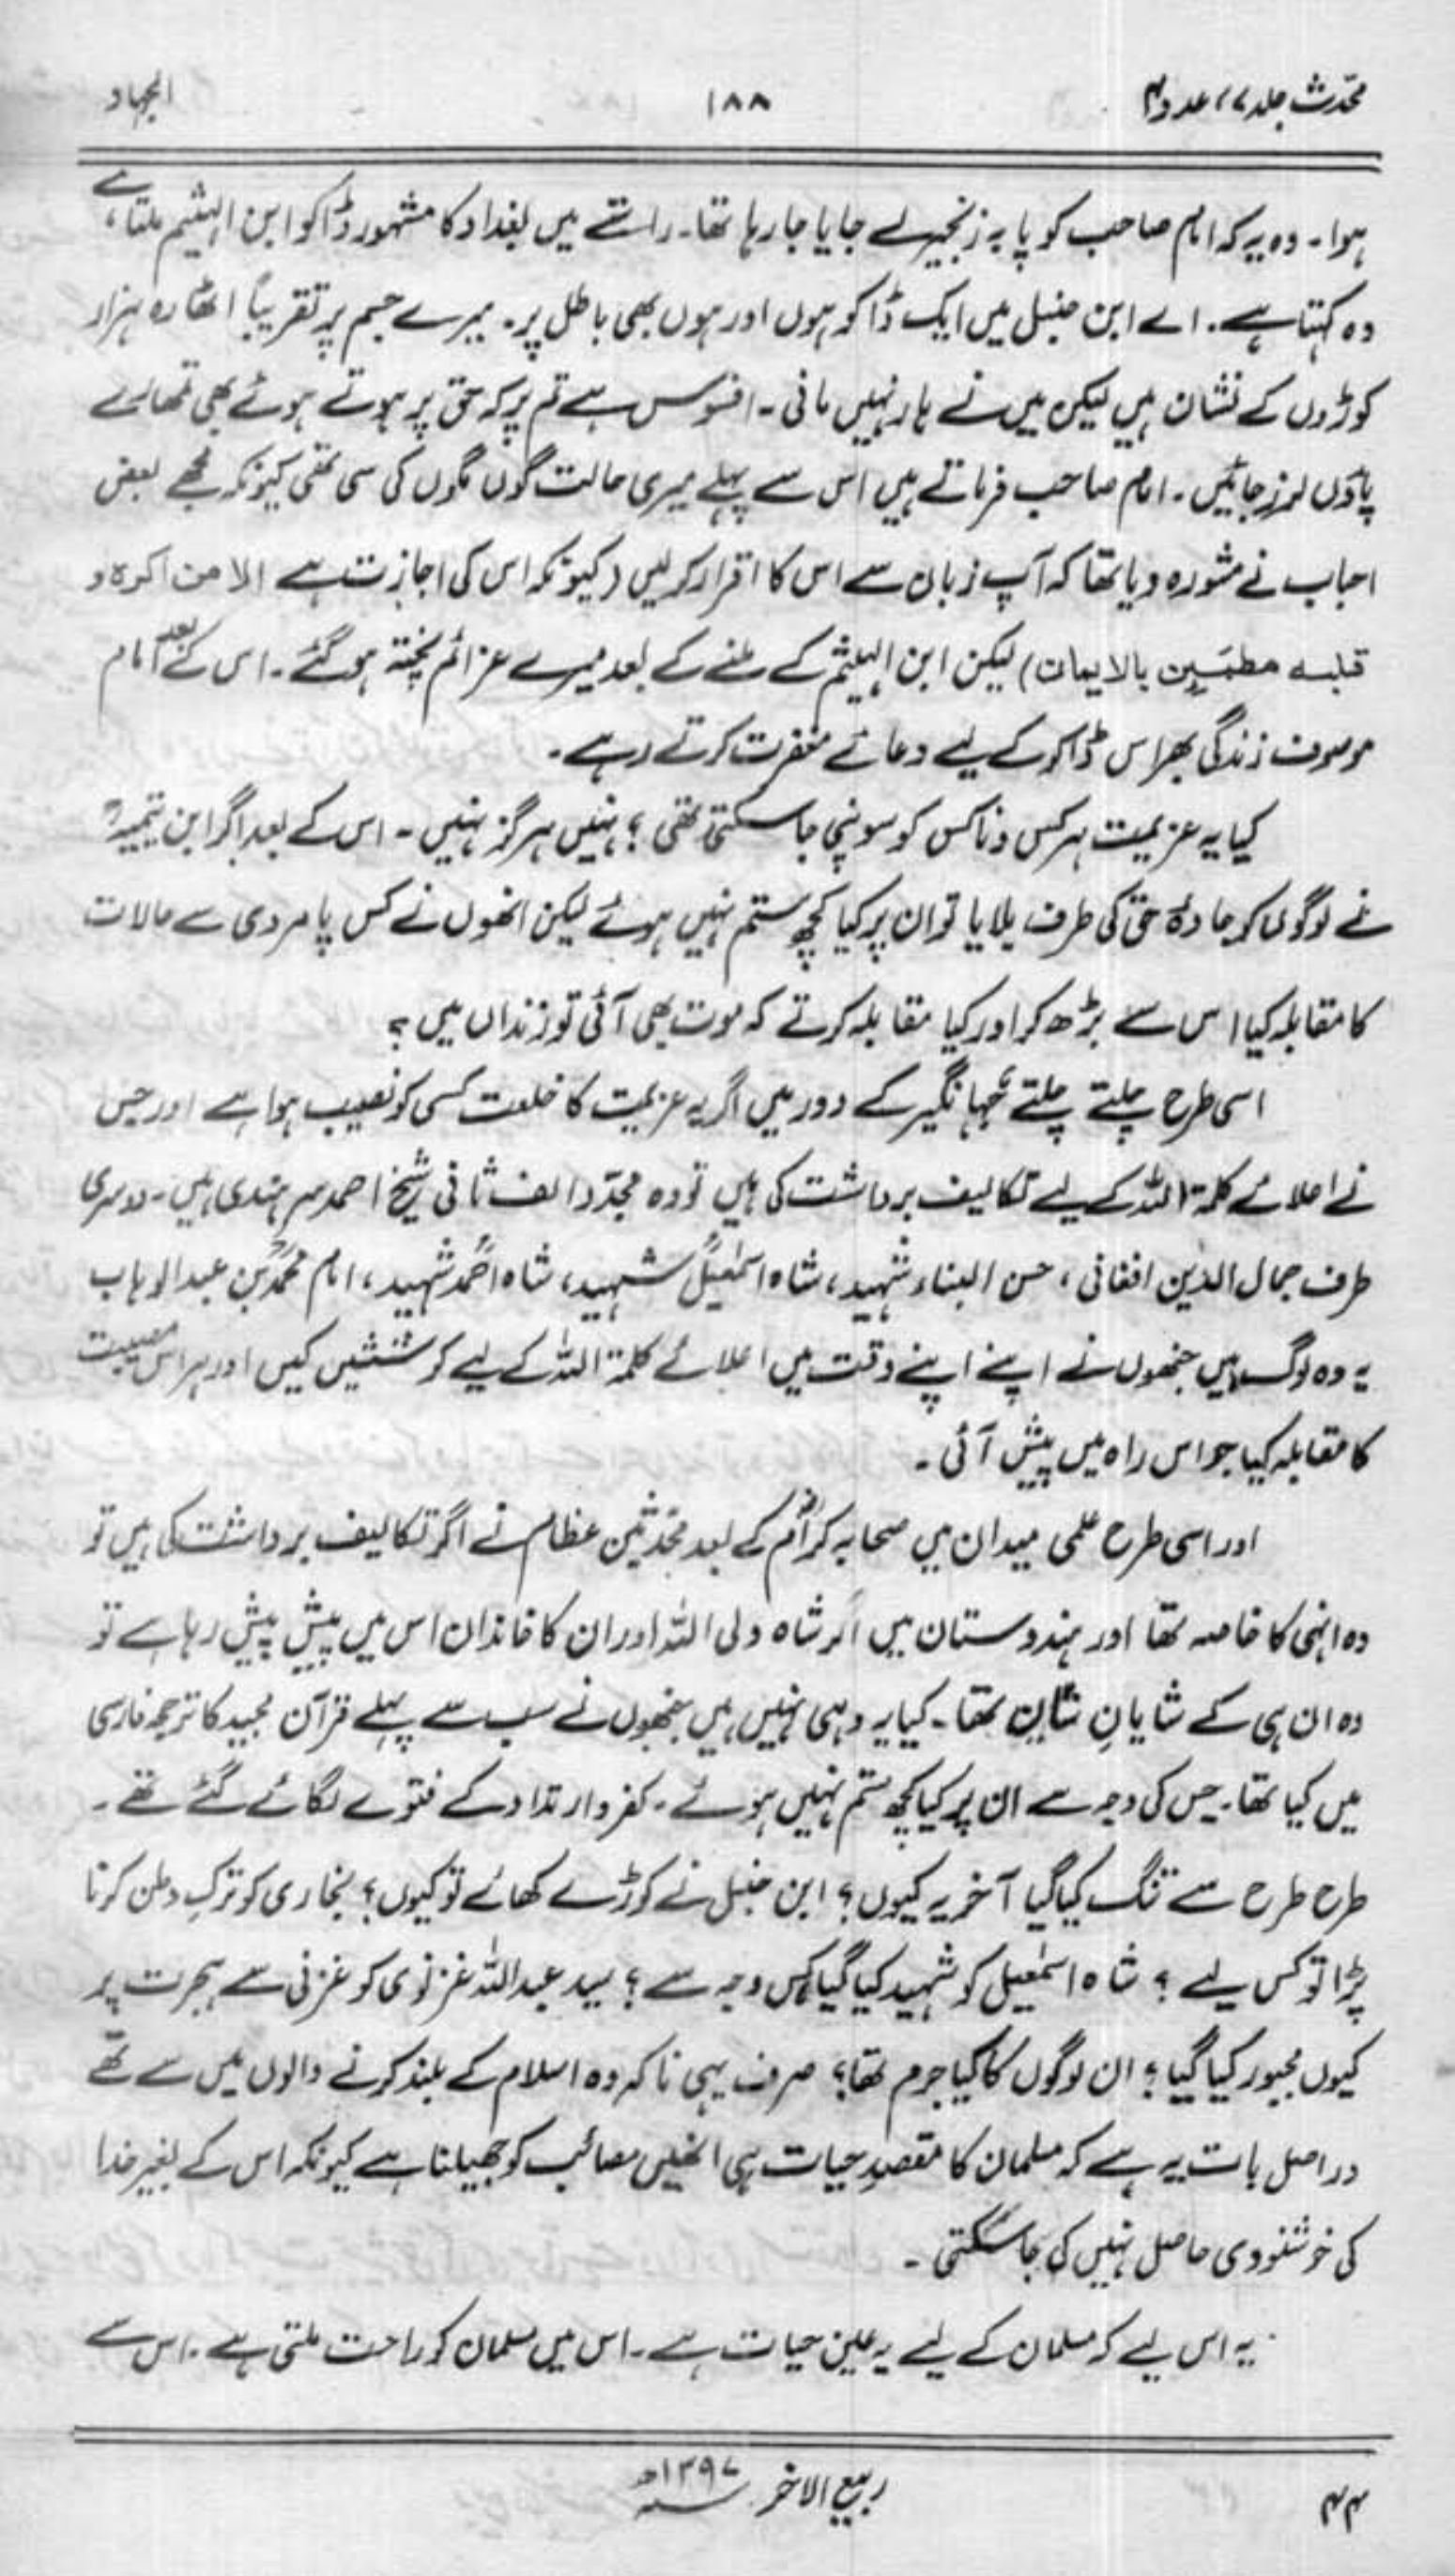 محدّث جلد ۷، عدد ۴
۱۸۸
الجہاد
ہوا۔ وہ یہ کہ امام صاحب کو پابہ زنجیر لے جایا جا رہا تھا۔ راستے میں بغداد کا مشہور ڈاکو ابن الہیثم ملتا ہے،
وہ کہتا ہے۔ اے ابن حنبل میں ایک ڈاکو ہوں اور ہوں بھی باطل پر۔ میرے جسم پر تقریباً اٹھارہ ہزار
کوڑوں کے نشان ہیں لیکن میں نے ہار نہیں مانی۔ افسوس ہے تم پر کہ حق پر ہوتے ہوئے بھی تمھارے
پاؤں لرز جائیں۔ امام صاحب فرماتے ہیں اس سے پہلے میری حالت گوں مگوں کی سی تھی کیونکہ مجھے بعض
احباب نے مشورہ دیا تھا کہ آپ زبان سے اس کا اقرار کر لیں (کیونکہ اس کی اجازت ہے الا من اکرہ و
قلبہ مطمئن بالایمان) لیکن ابن الہیثم کے ملنے کے بعد میرے عزائم پختہ ہو گئے۔ اس کے بعد امام
موصوف زندگی بھر اس ڈاکو کے لیے دعائے مغفرت کرتے رہے۔
کیا یہ عزیمت ہر کس و ناکس کو سونپی جا سکتی تھی؟ نہیں ہرگز نہیں۔ اس کے بعد اگر ابن تیمیہؒ
نے لوگوں کو جادۂ حق کی طرف بلایا تو ان پر کیا کچھ ستم نہیں ہوئے لیکن انھوں نے کس پامردی سے حالات
کا مقابلہ کیا اس سے بڑھ کر اور کیا مقابلہ کرتے کہ موت بھی آئی تو زنداں میں؟
اسی طرح چلتے چلتے جہانگیر کے دور میں اگر یہ عزیمت کا خلعت کسی کو نصیب ہوا ہے اور جس
نے اعلائے کلمۃ اللہ کے لیے تکالیف برداشت کی ہیں تو وہ مجدّد الف ثانی شیخ احمد سرہندی ہیں۔ دوسری
طرف جمال الدین افغانی، حسن البناء شہید، شاہ اسمٰعیلؒ شہید، شاہ احمدؒ شہید، امام محمدؒ بن عبدالوہاب
یہ وہ لوگ ہیں جنھوں نے اپنے اپنے وقت میں اعلائے کلمۃ اللہ کے لیے کوششیں کیں اور ہر اس مصیبت
کا مقابلہ کیا جو اس راہ میں پیش آئی۔
اور اسی طرح علمی میدان میں صحابہ کرامؓ کے بعد محدّثین عظام نے اگر تکالیف برداشت کی ہیں تو
وہ انہی کا خاصہ تھا اور ہندوستان میں اگر شاہ ولی اللہ اور ان کا خاندان اس میں پیش پیش رہا ہے تو
وہ ان ہی کے شایانِ شان تھا۔ کیا یہ وہی نہیں ہیں جنھوں نے سب سے پہلے قرآن مجید کا ترجمہ فارسی
میں کیا تھا۔ جس کی وجہ سے ان پر کیا کچھ ستم نہیں ہوئے۔ کفر و ارتداد کے فتوے لگائے گئے تھے۔
طرح طرح سے تنگ کیا گیا آخر یہ کیوں؟ ابن حنبل نے کوڑے کھائے تو کیوں؟ بخاری کو ترکِ وطن کرنا
پڑا تو کس لیے؟ شاہ اسمٰعیل کو شہید کیا گیا کس وجہ سے؟ سید عبداللہ غزنوی کو غزنی سے ہجرت پر
کیوں مجبور کیا گیا؟ ان لوگوں کا کیا جرم تھا؟ صرف یہی نا کہ وہ اسلام کے بلند کرنے والوں میں سے تھے
دراصل بات یہ ہے کہ مسلمان کا مقصدِ حیات ہی انھیں مصائب کو جھیلنا ہے کیونکہ اس کے بغیر خدا
کی خوشنودی حاصل نہیں کی جا سکتی۔
یہ اس لیے کہ مسلمان کے لیے یہ عین حیات ہے۔ اس میں مسلمان کو راحت ملتی ہے۔ اس سے
ربیع الآخر ۱۳۹۷ھ
۴۴